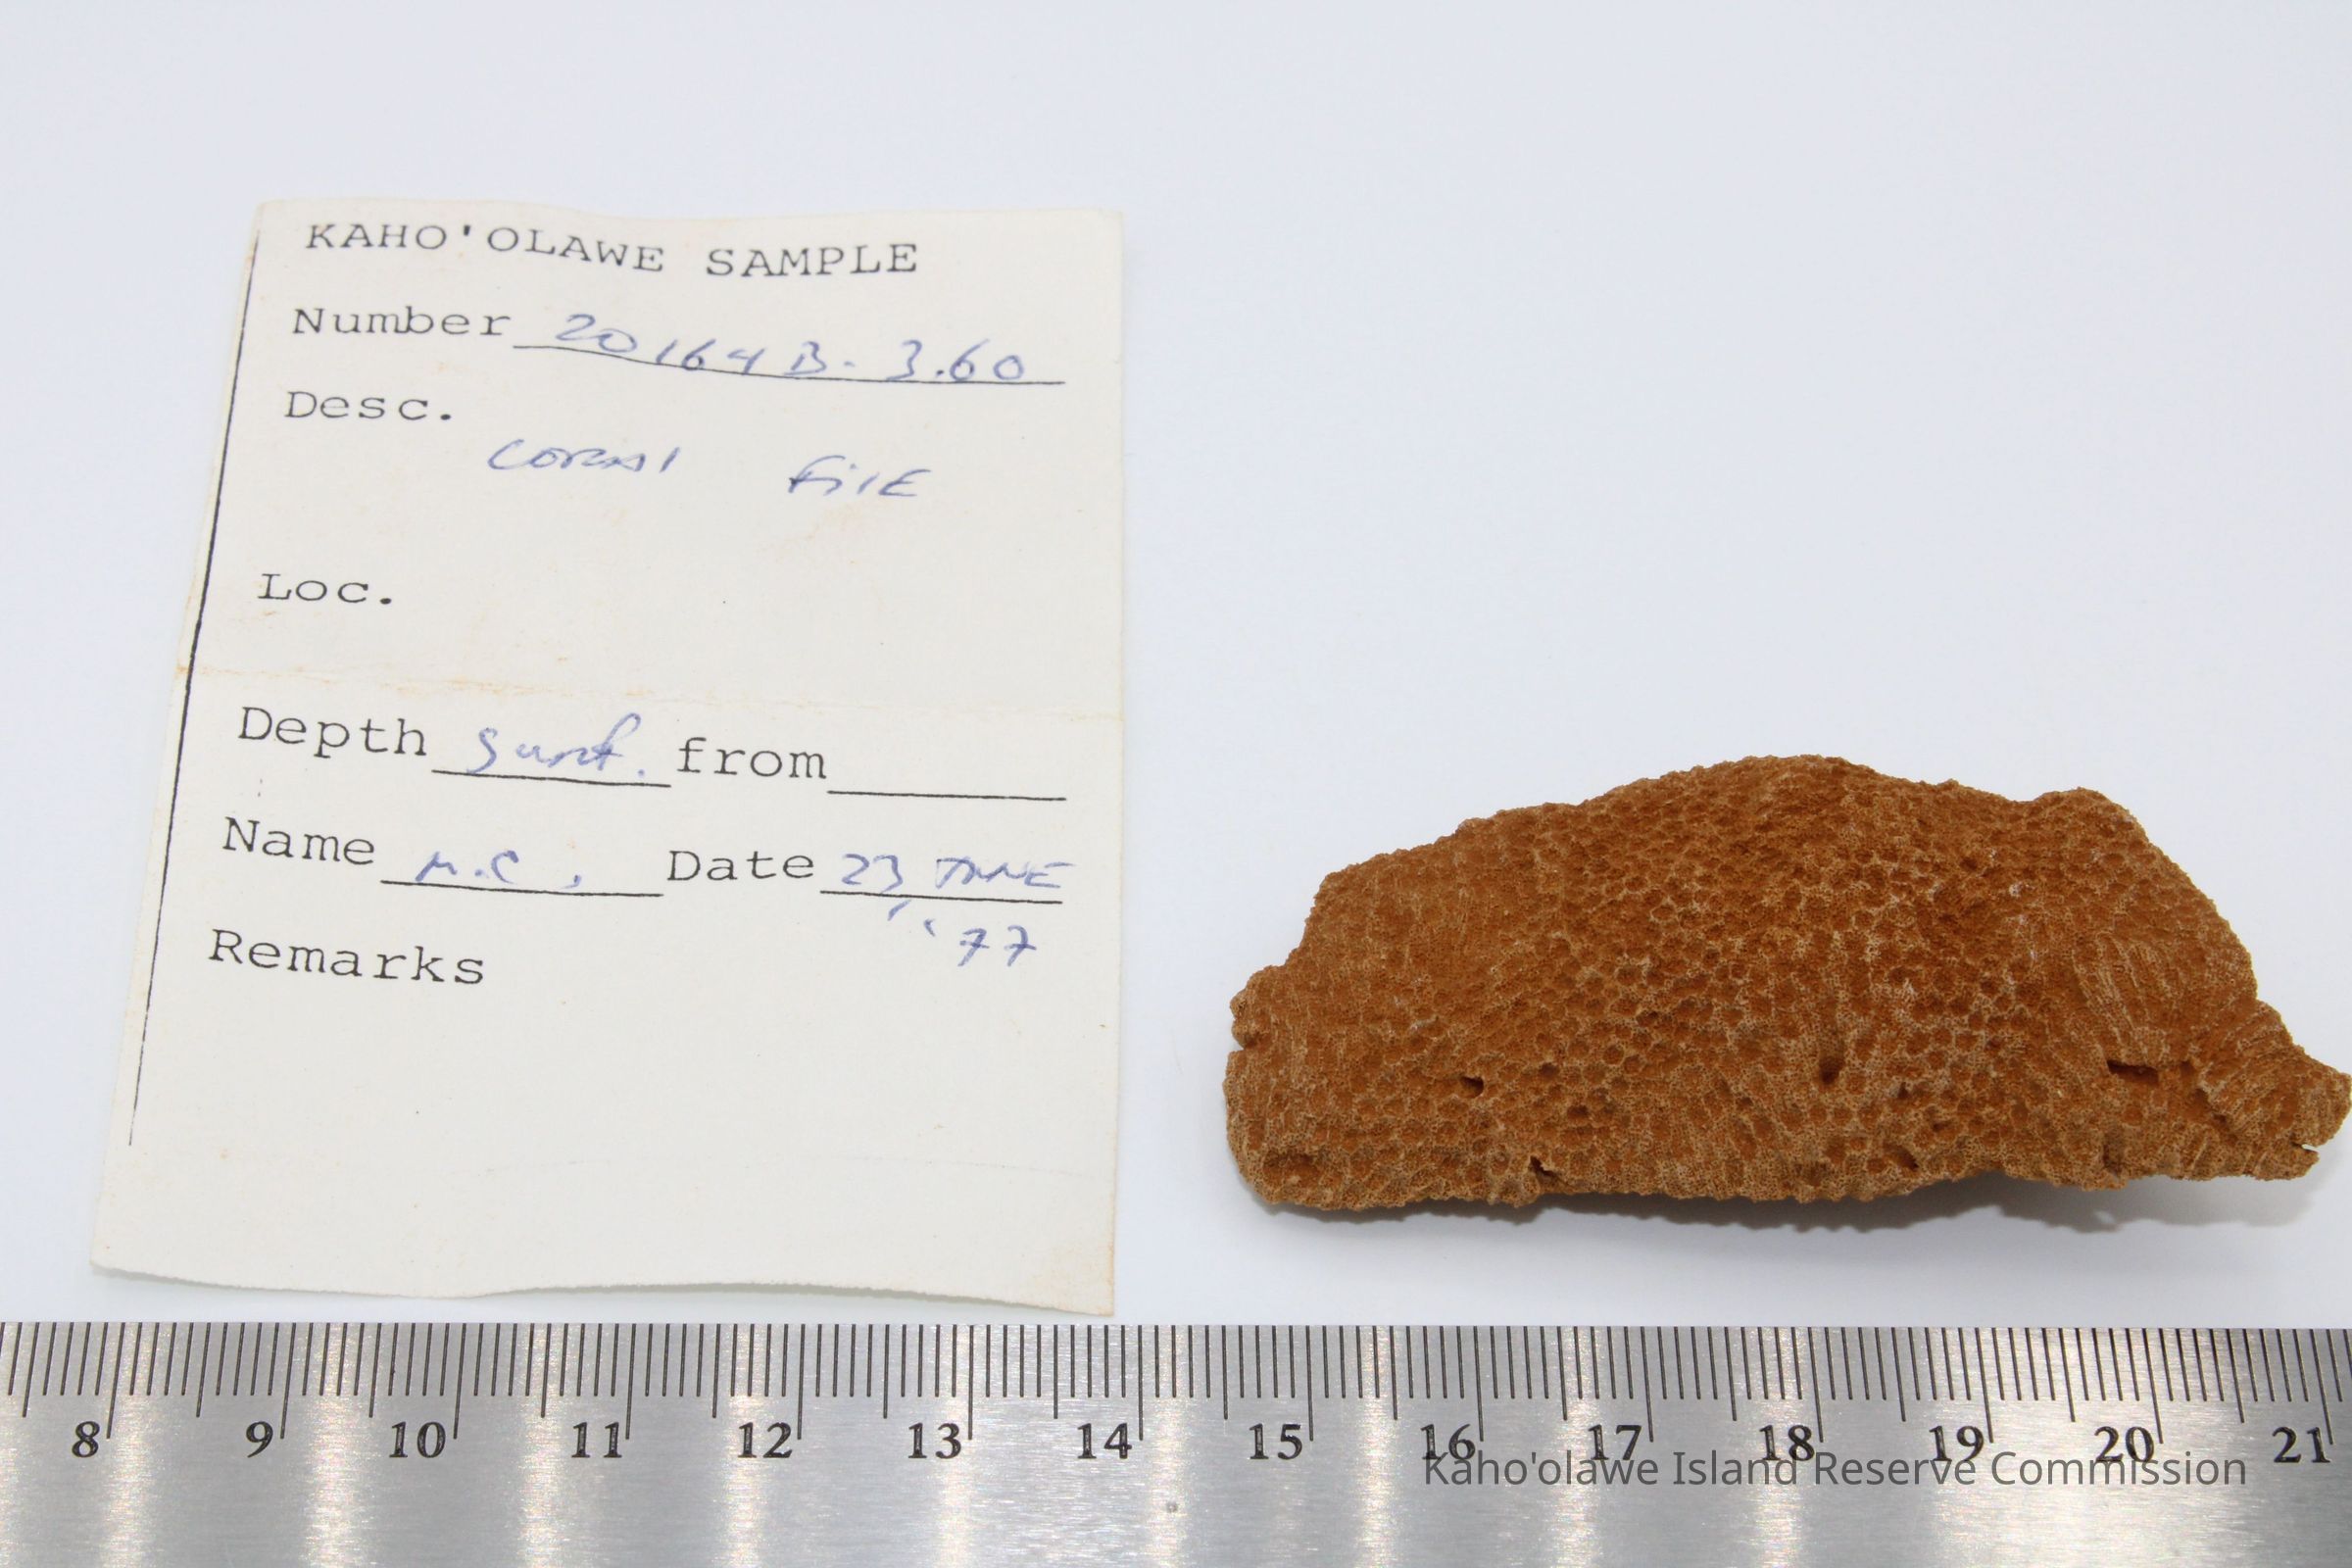 KAHO'OLAWE SAMPLE
Number 20164B-3.60
Desc.
CORAl FilE
Loc.
Depth surf. from
Name M.C. Date 23 JUNE
'77
Remarks
8 9 10 11 12 13 14 15 16 17 18 19 20 21
Kaho'olawe Island Reserve Commission